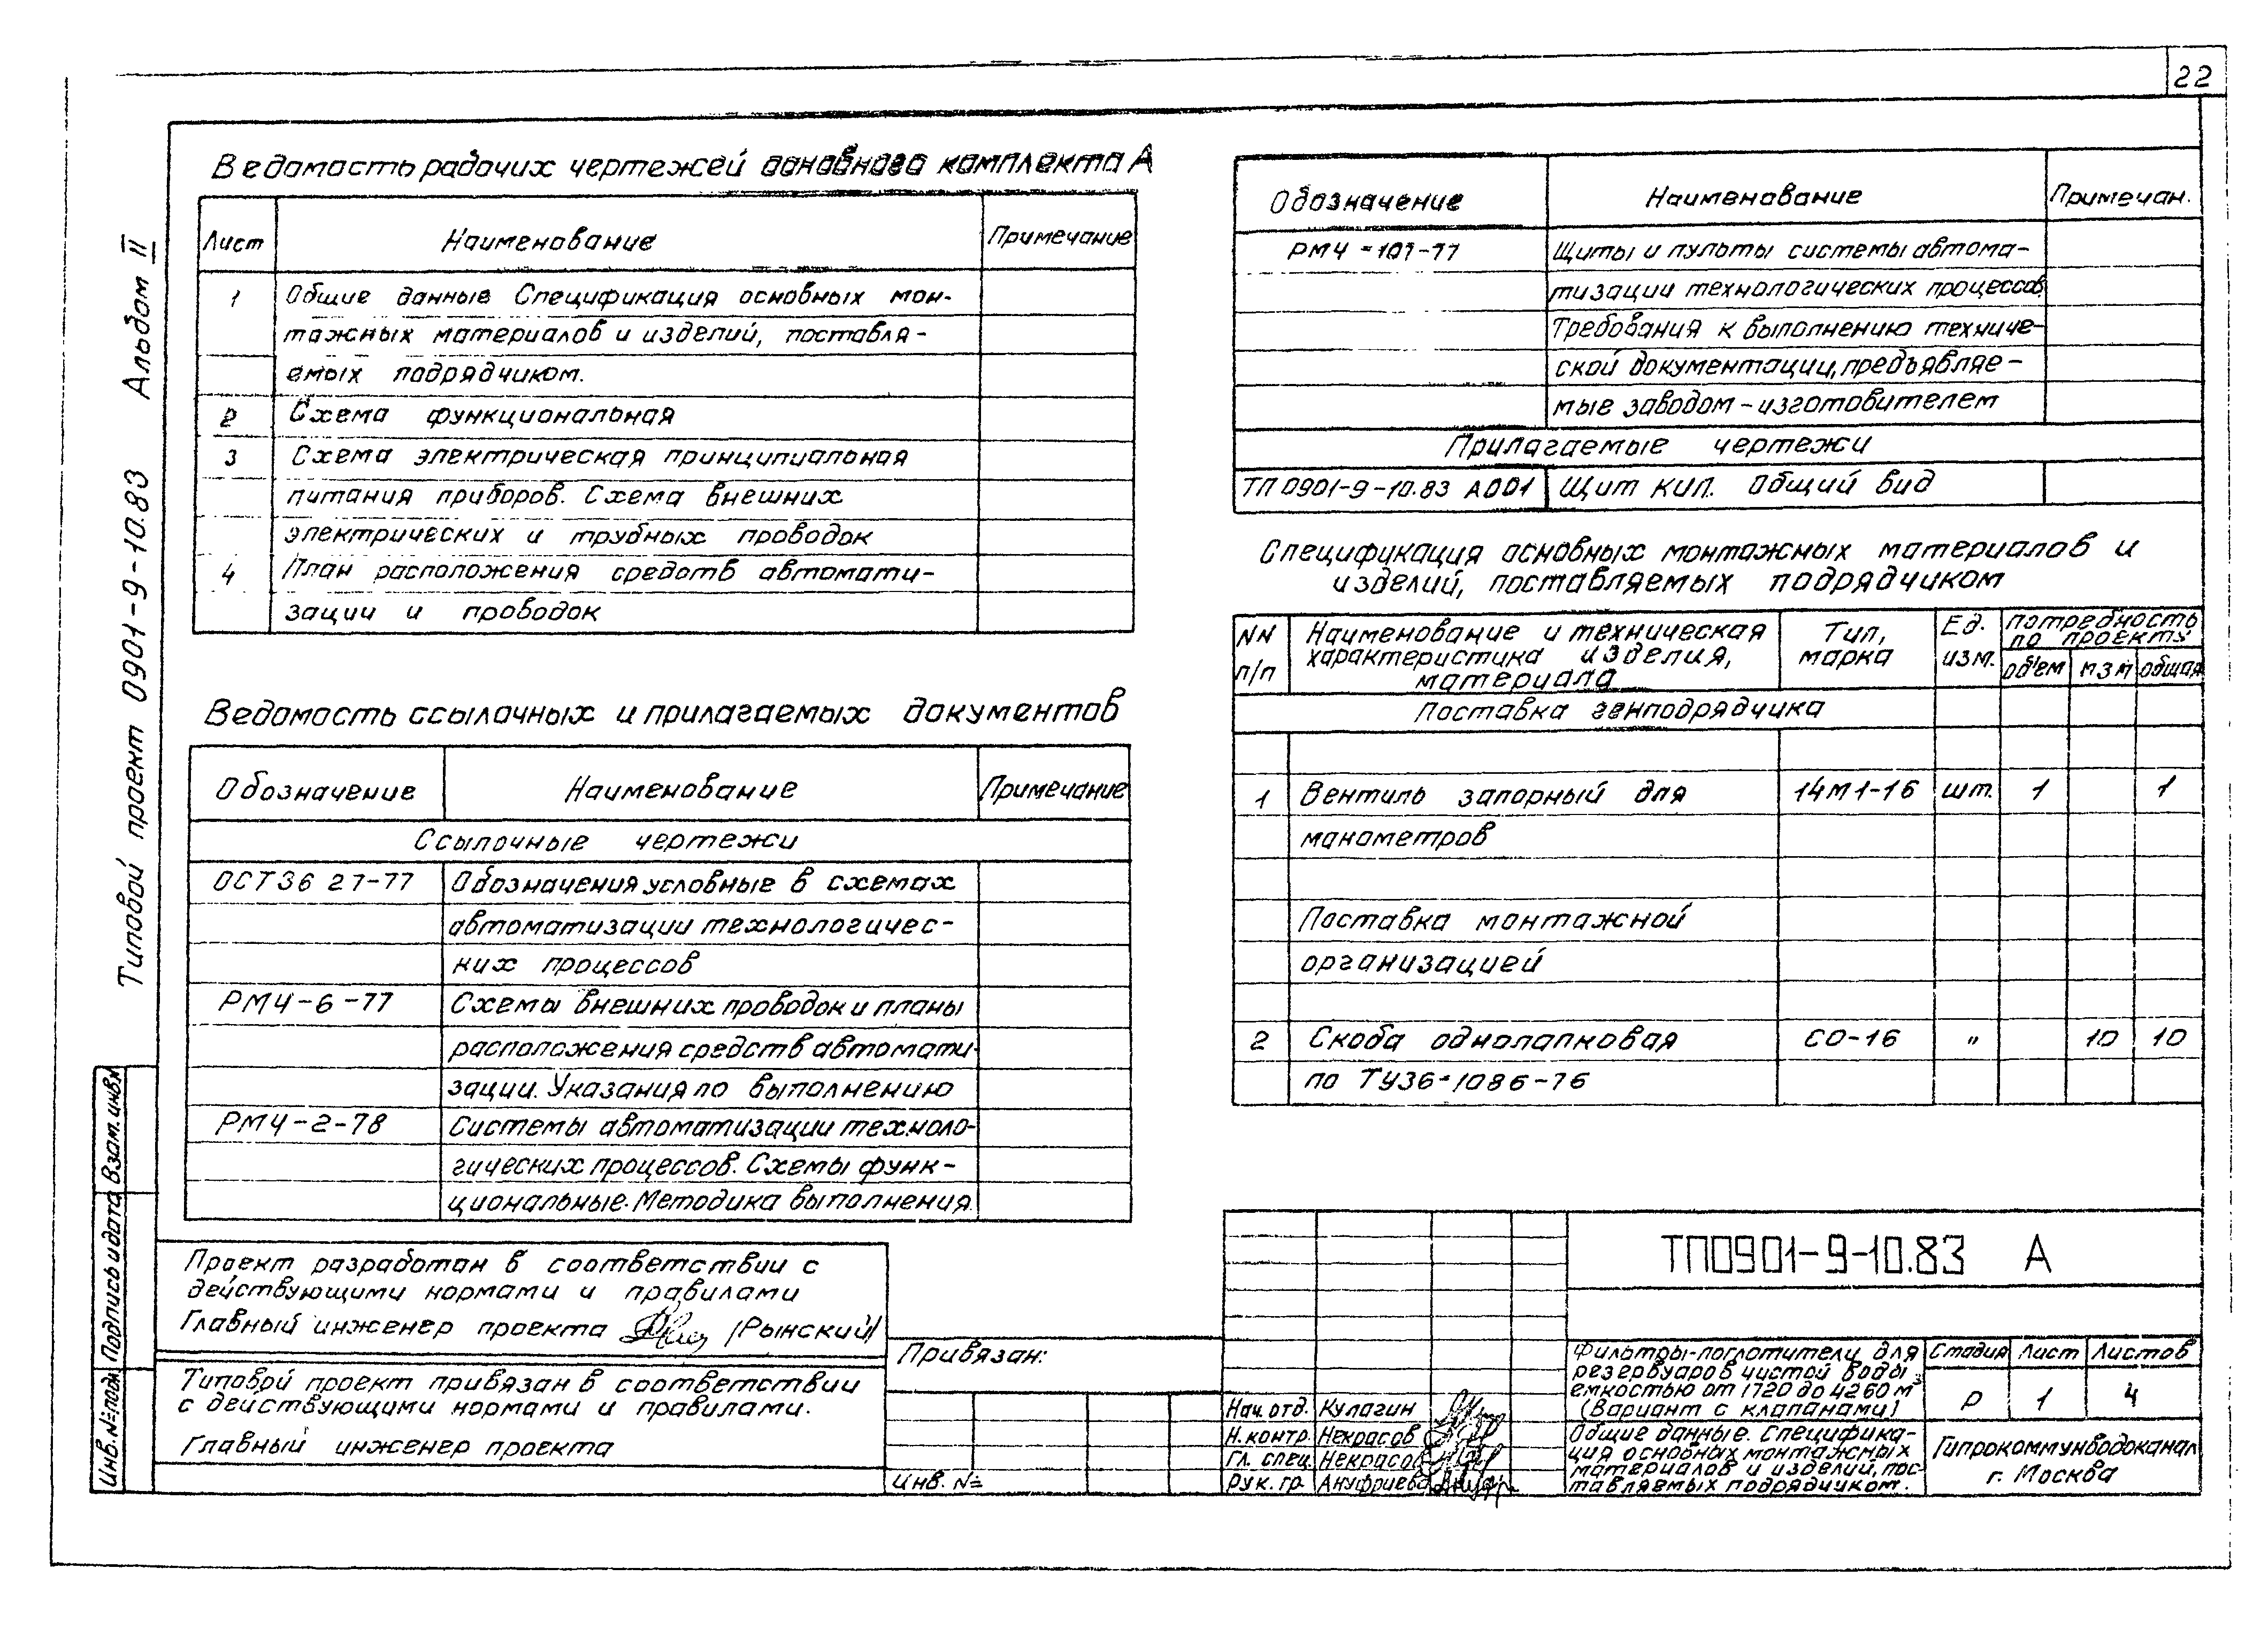 22
Типовой проект 0901-9-10.83 Альбом II
Ведомасть рабочих чертежей основного комплекта А
Лист Наименование Примечание
1 Общие данные Спецификация основных мон-
тажных материалов и изделий, поставля-
емых подрядчиком.
2 Схема функциональная
3 Схема электрическая принципиальная
питания приборов. Схема внешних
электрических и трубных проводок
4 План расположения средств автомати-
зации и проводок
Ведомость ссылочных и прилагаемых документов
Обозначение Наименование Примечание
Ссылочные чертежи
ОСТ36 27-77 Обозначения условные в схемах
автоматизации технологичес-
ких процессов
РМ4-6-77 Схемы внешних проводок и планы
расположения средств автомати-
зации. Указания по выполнению
РМ4-2-78 Системы автоматизации техноло-
гических процессов. Схемы функ-
циональные. Методика выполнения
Обозначение Наименование Примечан.
РМ4-107-77 Щиты и пульты системы автома-
тизации технологических процессов.
Требования к выполнению техниче-
ской документации, предъявляе-
мые заводом-изготовителем
Прилагаемые чертежи
ТП 0901-9-10.83 А001 Щит КИП. Общий вид
Спецификация основных монтажных материалов и
изделий, поставляемых подрядчиком
NN п/п Наименование и техническая характеристика изделия, материала Тип, марка Ед. изм. потребность по проекту
об'ем пзм общая
Поставка генподрядчика
1 Вентиль запорный для 14М1-16 шт. 1 1
манометров
Поставка монтажной
организацией
2 Скоба однолапковая СО-16 " 10 10
по ТУ36-1086-76
Проект разработан в соответствии с
действующими нормами и правилами
Главный инженер проекта /Рынский/
Типовой проект привязан в соответствии
с действующими нормами и правилами.
Главный инженер проекта
Привязан:
Инв. №
Инв.№ подл. Подпись и дата Взам. инв.№
ТП0901-9-10.83 А
Нач. отд. Кулагин
Н.контр. Некрасов
Гл. спец. Некрасов
Рук. гр. Ануфриева
Фильтры-поглотители для
резервуаров чистой воды
емкостью от 1720 до 4260 м³
(Вариант с клапанами)
Стадия Лист Листов
Р 1 4
Общие данные. Специфика-
ция основных монтажных
материалов и изделий, пос-
тавляемых подрядчиком.
Гипрокоммунводоканал
г. Москва